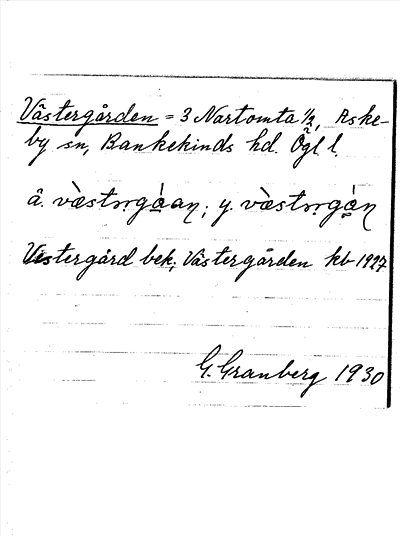 Västergården = 3 Nartomta 1/2, Aske-
by sn, Bankekinds hd. Ögl l.
ä. vàestərgá̱an; y. vàestərgá̱n
Vestergård bek; Västergården kb 1927
G. Granberg 1930